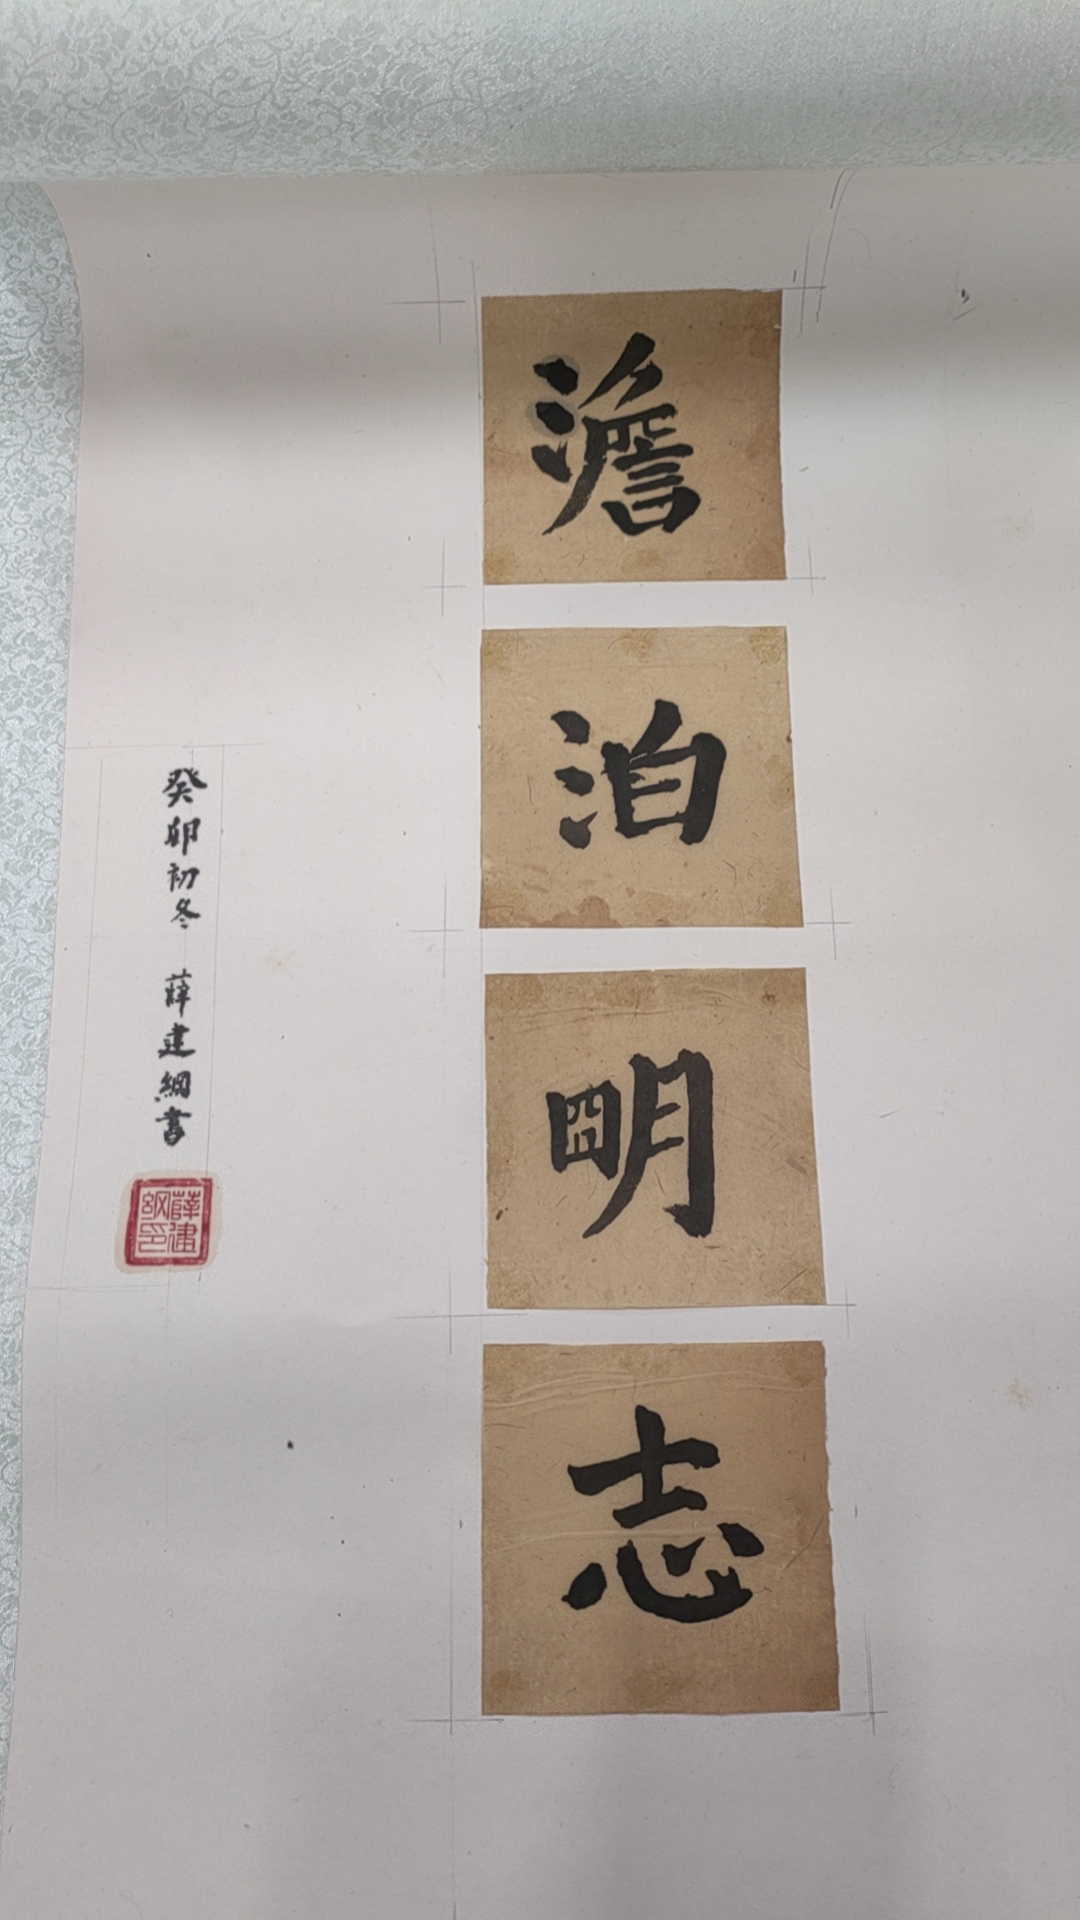 澹泊明志
癸卯初冬 薛建綱書
薛建綱印